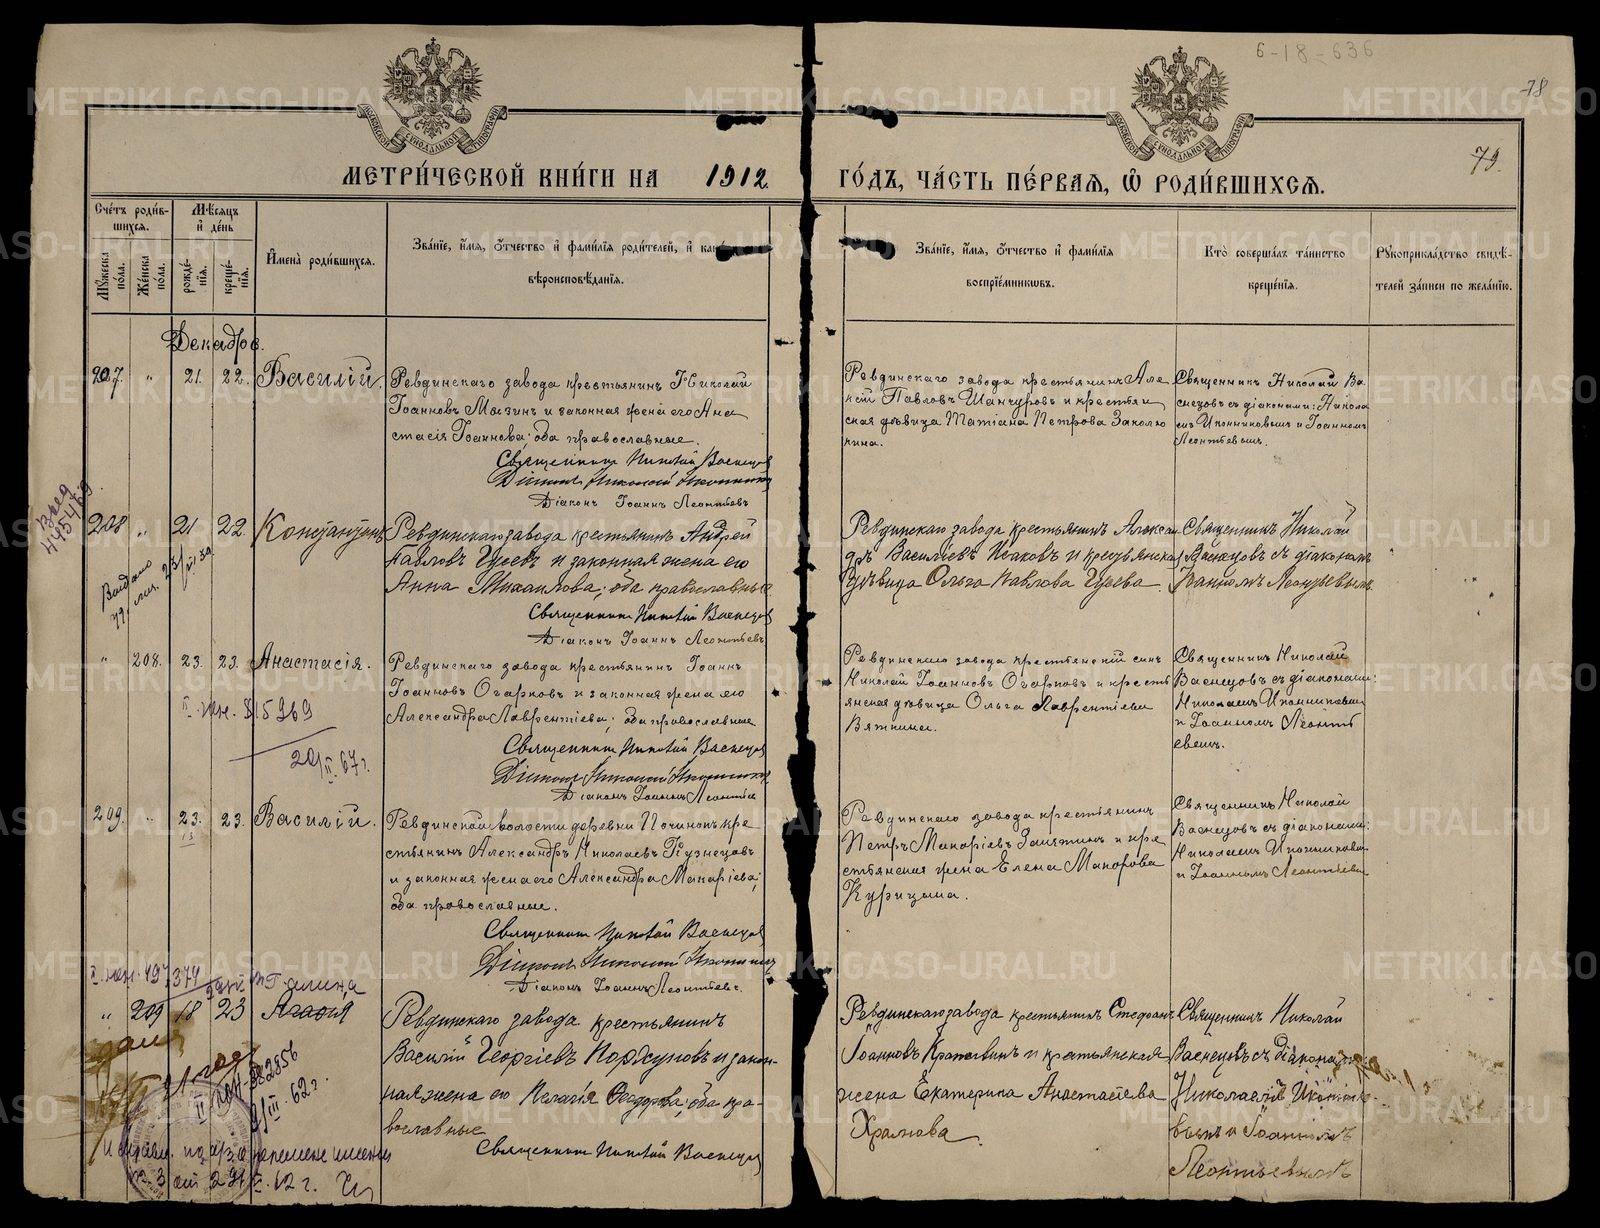 6-18-636
78
79.
МЕТРИ́ЧЕСКОЙ КНИ́ГИ НА 1912 ГО́ДЪ, ЧА́СТЬ ПЕ́РВАѦ, Ѽ РОДИ́ВШИХСѦ.
Сче́тъ роди́в-
шихсѧ.
Мѣ́сѧцъ
и де́нь
Мꙋжеска по́ла.
Же́нска по́ла.
рожде́-
нїѧ.
креще́-
нїѧ.
Имена̀ роди́вшихсѧ.
Зва́нїе, и́мѧ, о́тчество и фами́лїѧ роди́телей, и
вѣроисповѣ́данїѧ.
Зва́нїе, и́мѧ, о́тчество и фами́лїѧ
воспрїе́мникѡвъ.
Кто̀ соверша́лъ та́инство
креще́нїѧ.
Рꙋкоприкла́дство свидѣ́-
телей за́писи по жела́нїю.
Декабрь.
207. " 21. 22. Василій.
Ревдинскаго завода крестьянинъ Николай
Іоанновъ Мазинъ и законная жена его Ана
стасія Іоаннова; оба православные.
Священникъ Николай Васнецовъ
Діаконъ Николай Иконниковъ
Діаконъ Іоаннъ Леонтьевъ
Ревдинскаго завода крестьянинъ Але
ксѣй Павловъ Шанчуровъ и крестья
нская дѣвица Татіана Петрова Заколю
кина.
Священникъ Николай Ва
снецовъ съ діаконами: Никола
емъ Иконниковымъ и Іоанномъ
Леонтьевымъ.
208 " 21 22 Константинъ
Ревдинскаго завода крестьянинъ Андрей
Павловъ Гусевъ и законная жена его
Анна Михаилова; оба православные
Священникъ Николай Васнецовъ
Діаконъ Іоаннъ Леонтьевъ
Ревдинскаго завода крестьянинъ Алексан
дръ Василіевъ Исаковъ и крестьянская
дѣвица Ольга Павлова Гусева.
Священникъ Николай
Васнецовъ съ діакономъ
Іоанномъ Леонтьевымъ
" 208. 23. 23. Анастасія.
Ревдинскаго завода крестьянинъ Іоаннъ
Іоанновъ Огарковъ и законная жена его
Александра Лаврентіева; оба православные
Священникъ Николай Васнецовъ
Діаконъ Николай Иконниковъ
Діаконъ Іоаннъ Леонтьевъ
Ревдинскаго завода крестьянскій сынъ
Николай Іоанновъ Огарковъ и кресть
янская дѣвица Ольга Лаврентіева
Вяткина.
Священникъ Николай
Васнецовъ съ діаконами:
Николаемъ Иконниковымъ
и Іоанномъ Леонть
евымъ.
20/II 67 г.
209. " 23. 23. Василій.
Ревдинской волости деревни Починокъ кре
стьянинъ Александръ Николаевъ Кузнецовъ
и законная жена его Александра Макаріева;
оба православные.
Священникъ Николай Васнецовъ
Діаконъ Николай Иконниковъ
Діаконъ Іоаннъ Леонтьевъ.
Ревдинскаго завода крестьянинъ
Петръ Макаріевъ Замятинъ и кре
стьянская жена Елена Макарова
Курицына.
Священникъ Николай
Васнецовъ съ діаконами:
Николаемъ Иконниковымъ
и Іоанномъ Леонтьевымъ
Галина
" 209 18 23 Агафія
Ревдинскаго завода крестьянинъ
Василій Георгіевъ Порхуновъ и закон-
ная жена его Пелагія Ѳедорова; оба пра-
вославные
Священникъ Николай Васнецовъ
Ревдинскаго завода крестьянинъ Стефанъ
Іоанновъ Кротовинъ и крестьянская
жена Екатерина Анастасіева
Храмова.
Священникъ Николай
Васнецовъ съ діаконами
Николаемъ Иконнико-
вымъ и Іоанномъ
Леонтьевымъ
METRIKI.GASO-URAL.RU